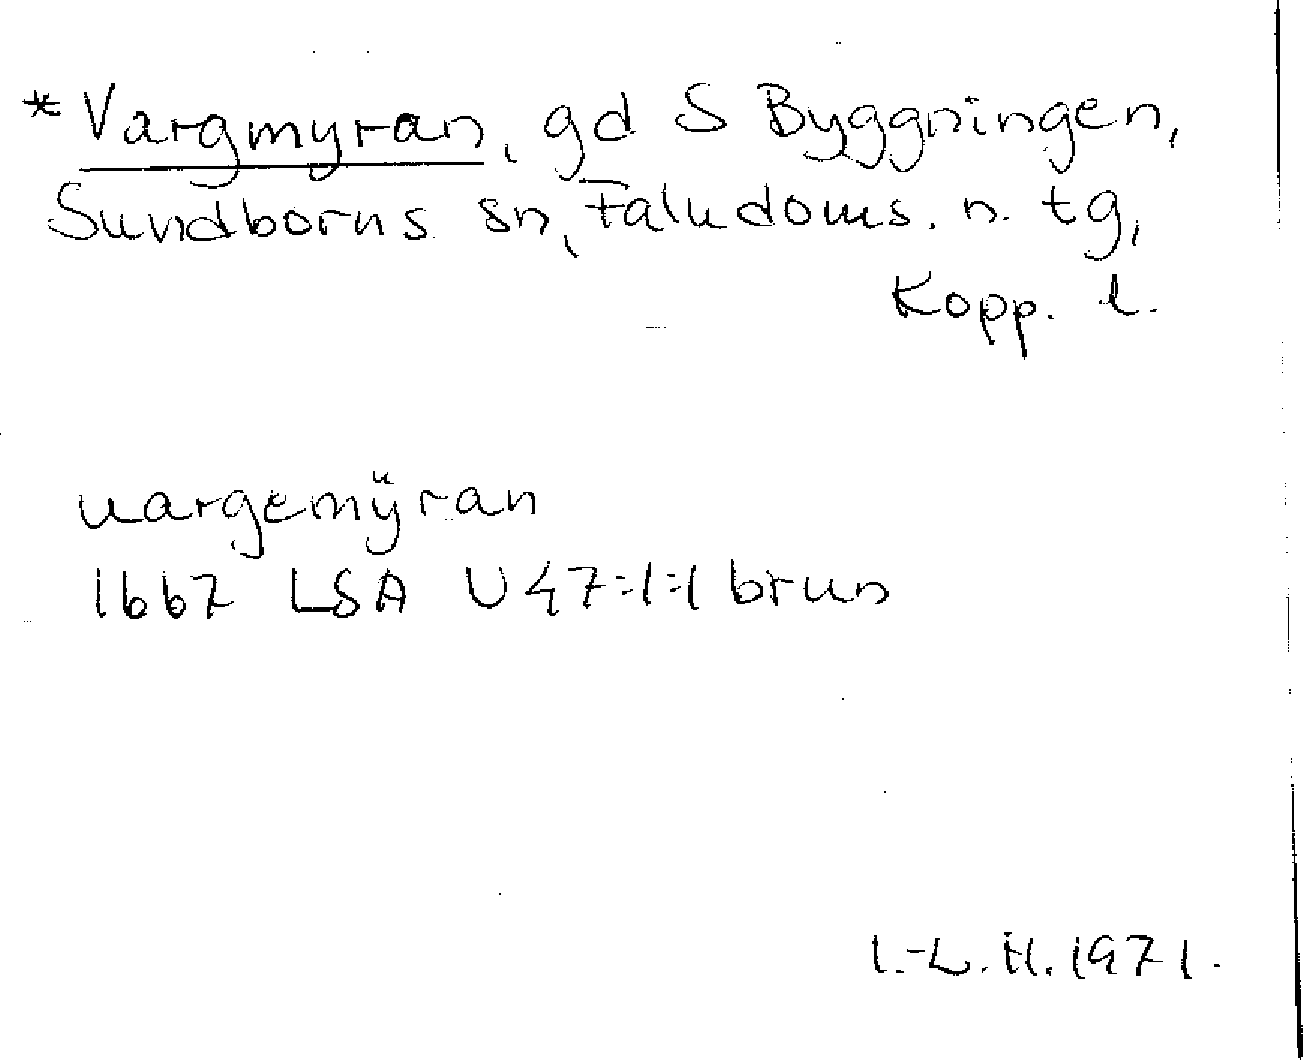 *Vargmyran, gd S Byggningen,
Sundborns sn, Faludoms. n. tg,
Kopp. l.
uargemÿran
1667 LSA U47:1:1 brun
I.-L. H. 1971.